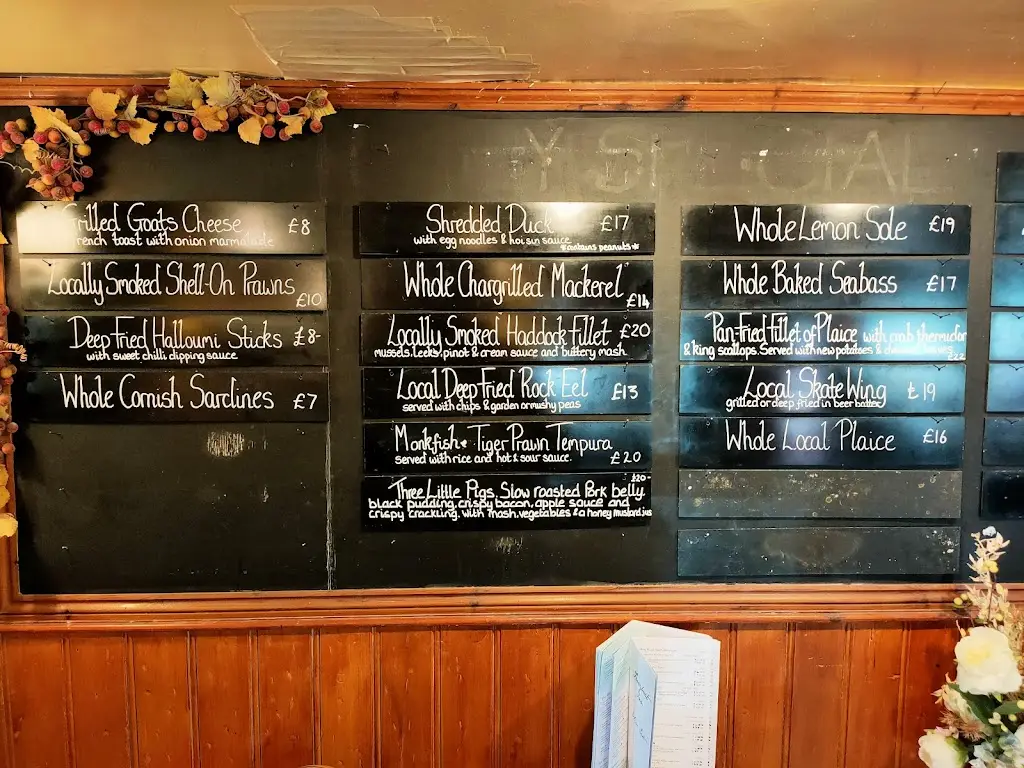 Grilled Goats Cheese £8
french toast with onion marmalade
Locally Smoked Shell-On Prawns
£10
Deep Fried Halloumi Sticks £8-
with sweet chilli dipping sauce
Whole Cornish Sardines £7
Shredded Duck £17
with egg noodles & hoi sun sauce
*contains peanuts*
Whole Chargrilled Mackerel
£14
Locally Smoked Haddock Fillet £20
mussels. Leeks, pinot & cream sauce and buttery mash.
Local Deep Fried Rock Eel £13
served with chips & garden or mushy peas
Monkfish & Tiger Prawn Tempura
served with rice and hot & sour sauce. £20
£20-
Three Little Pigs, Slow roasted Pork belly,
black pudding, crispy bacon, apple sauce and
crispy crackling. with mash, vegetables & a honey mustard jus
Whole Lemon Sole £19
Whole Baked Seabass £17
Pan-Fried Fillet of Plaice with crab thermidor
& king scallops. Served with new potatoes &
£22
Local Skate Wing £19
grilled or deep fried in beer batter
Whole Local Plaice £16